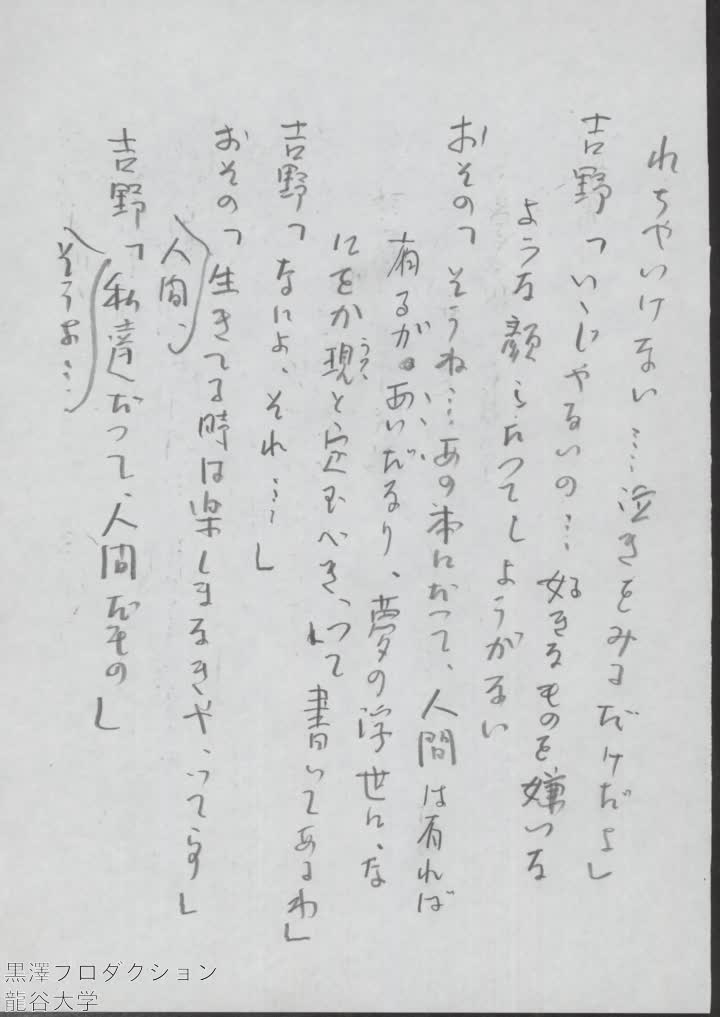 れちゃいけない……泣きをみるだけだよ」
吉野「いゝじゃないの…好きなものを嫌いな
ような顔したってしようがない
おその「そうね…あの本にだって、人間は有れば
有るがあいだなり、夢の浮世に、な
にをか現と定むべき、って書いてあるわ」
うつゝ
吉野「なによ、それ……」
おその「生きてる時は楽しまなきや、ってさ」
人間、
吉野「私達だって、人間だもの」
そうよ…
黒澤プロダクション
龍谷大学